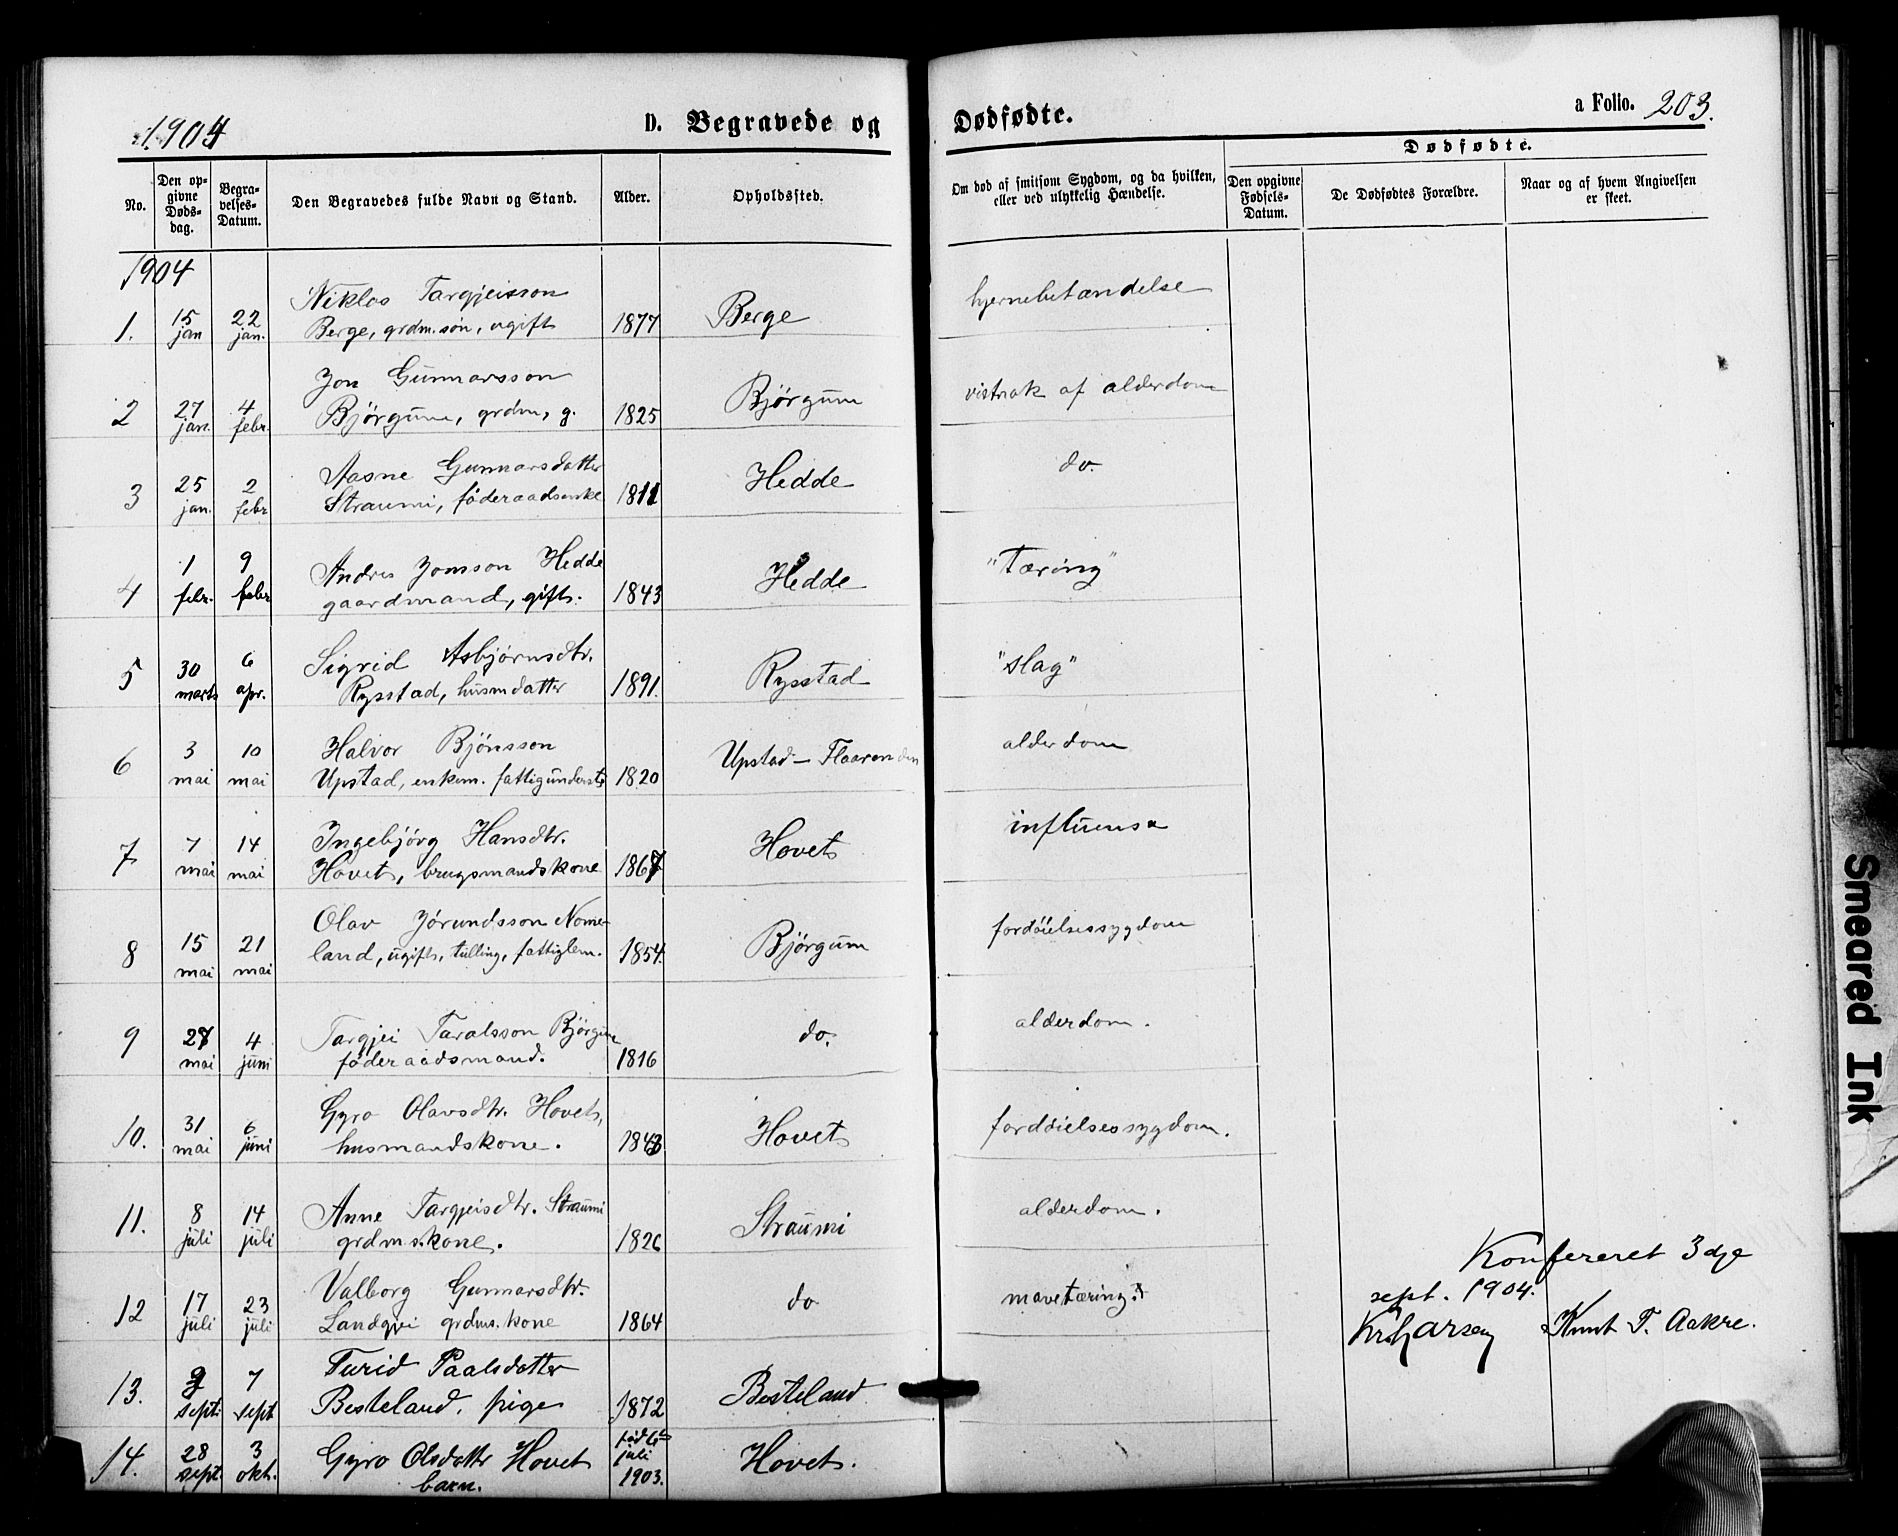 1904
D. Begravede og Dødfødte.
a Folio. 203.
No.
Den opgivne Dødsdag.
Begravelses-Datum.
Den Begravedes fulde Navn og Stand.
Alder.
Opholdssted.
Om død af smitsom Sygdom, og da hvilken, eller ved ulykkelig Hændelse.
Dødfødte.
Den opgivne Fødsels-Datum.
De Dødfødtes Forældre.
Naar og af hvem Angivelsen er skeet.
1904
Niklos Targjeisson
1. 15 jan 22 jan. Berge, grdm.søn, ugift 1877 Berge hjernebetændelse
Jon Gunnarsson
2 27 jan. 4 febr. Bjørgum, grdm, g. 1825 Bjørgum af alderdom
Aasne Gunnarsdatter
3 25 jan. 2 febr Straumi, føderaadsenke 1811 Hedde do.
Andres Jonsson Hedde
4 1 febr. 9 febr gaardmand, gift. 1843 Hedde "Tæring"
Sigrid Asbjørnsdtr.
5 30 marts 6 apr. Rysstad, husmdatter 1891. Rysstad "slag"
Halvor Bjønsson
6 3 mai 10 mai Upstad, enkem. fattigunderst 1820 Upstad - Flaarenden alderdom
Ingebjørg Hansdtr.
7 7 mai 14 mai Hovet, brugsmandskone 1867 Hovet influensa
Olav Jørundsson Nome-
8 15 mai 21 mai land, ugift, tulling, fattiglem. 1854. Bjørgum fordøielsessygdom
Targjei Taralsson Bjørgum
9 27 mai 4 juni føderaadsmand. 1816 do. alderdom.
Gyro Olavsdtr. Hovet,
10. 31 mai 6 juni husmandskone. 1843 Hovet fordøielsessygdom.
Anne Targjeisdtr. Straumi
11. 8 juli 14 juli grdmskone. 1826 Straumi alderdom.
Valborg Gunnarsdtr.
12 17 juli 23 juli Landgjei grdms.kone 1864 do mavetæring.
Konfereret 3dje
sept. 1904.
Kr. Larsen Knut T. Aakre.
Turid Paalsdatter
13. 2 sept. 7 sept Besteland, pige 1872 Besteland
14. 28 sept. 3 okt. Gyro Olsdatter Hovet født juli 1903. Hovet.
barn.
Smeared Ink